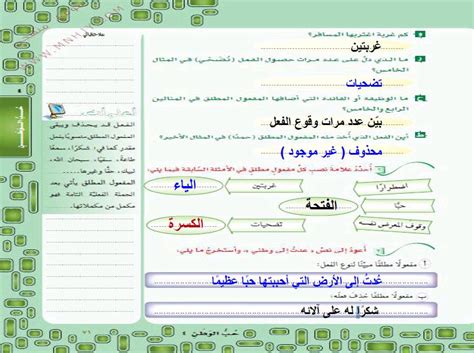 ملاحظاتي
كم غربة اغتربها المسافر؟
غربتين
ما الذي دلّ على عدد مرات حصول الفعل (تُضحّي) في المثال
الخامس؟
تضحيات
ما الوظيفة أو الفائدة التي أضافها المفعول المطلق في المثالين
الرابع والخامس؟
بيّن عدد مرات وقوع الفعل
أين الفعل الذي أُخذ منه المفعول المطلق (سمعًا) في المثال الأخير؟
محذوف ( غير موجود )
الفعل قد يحذف ويبقى
المفعول المطلق بأوزانه
مقدر كما في: شكرًا، سمعًا
طاعة، سبحان الله،
لبيك، حقًّا وغيرها...
المفعول المطلق يأتي بعد
الجملة التامة أي بعد
من مكملاتها.
أُحدّد علامة نصب كل مفعول مطلق في الأمثلة السّابقة فيما يلي:
اضطرارًا
غربتين
الياء
حبًّا
الفتحة
وقوف المعارض نفسه
تضحيات
الكسرة
أعود إلى نصّ، عدت إلى وطني، وأستخرج ما يلي:
١- مفعولًا مطلقًا مبيّنًا لنوع الفعل:
عُدتُ إلى الأرض التي أحببتها حبًا عظيمًا
ب- مفعولًا مطلقًا حُذف فعله:
شكرًا له على آلائه
حُبُّ الوَطَنِ ٤
٧٦
WWW.MNHJ